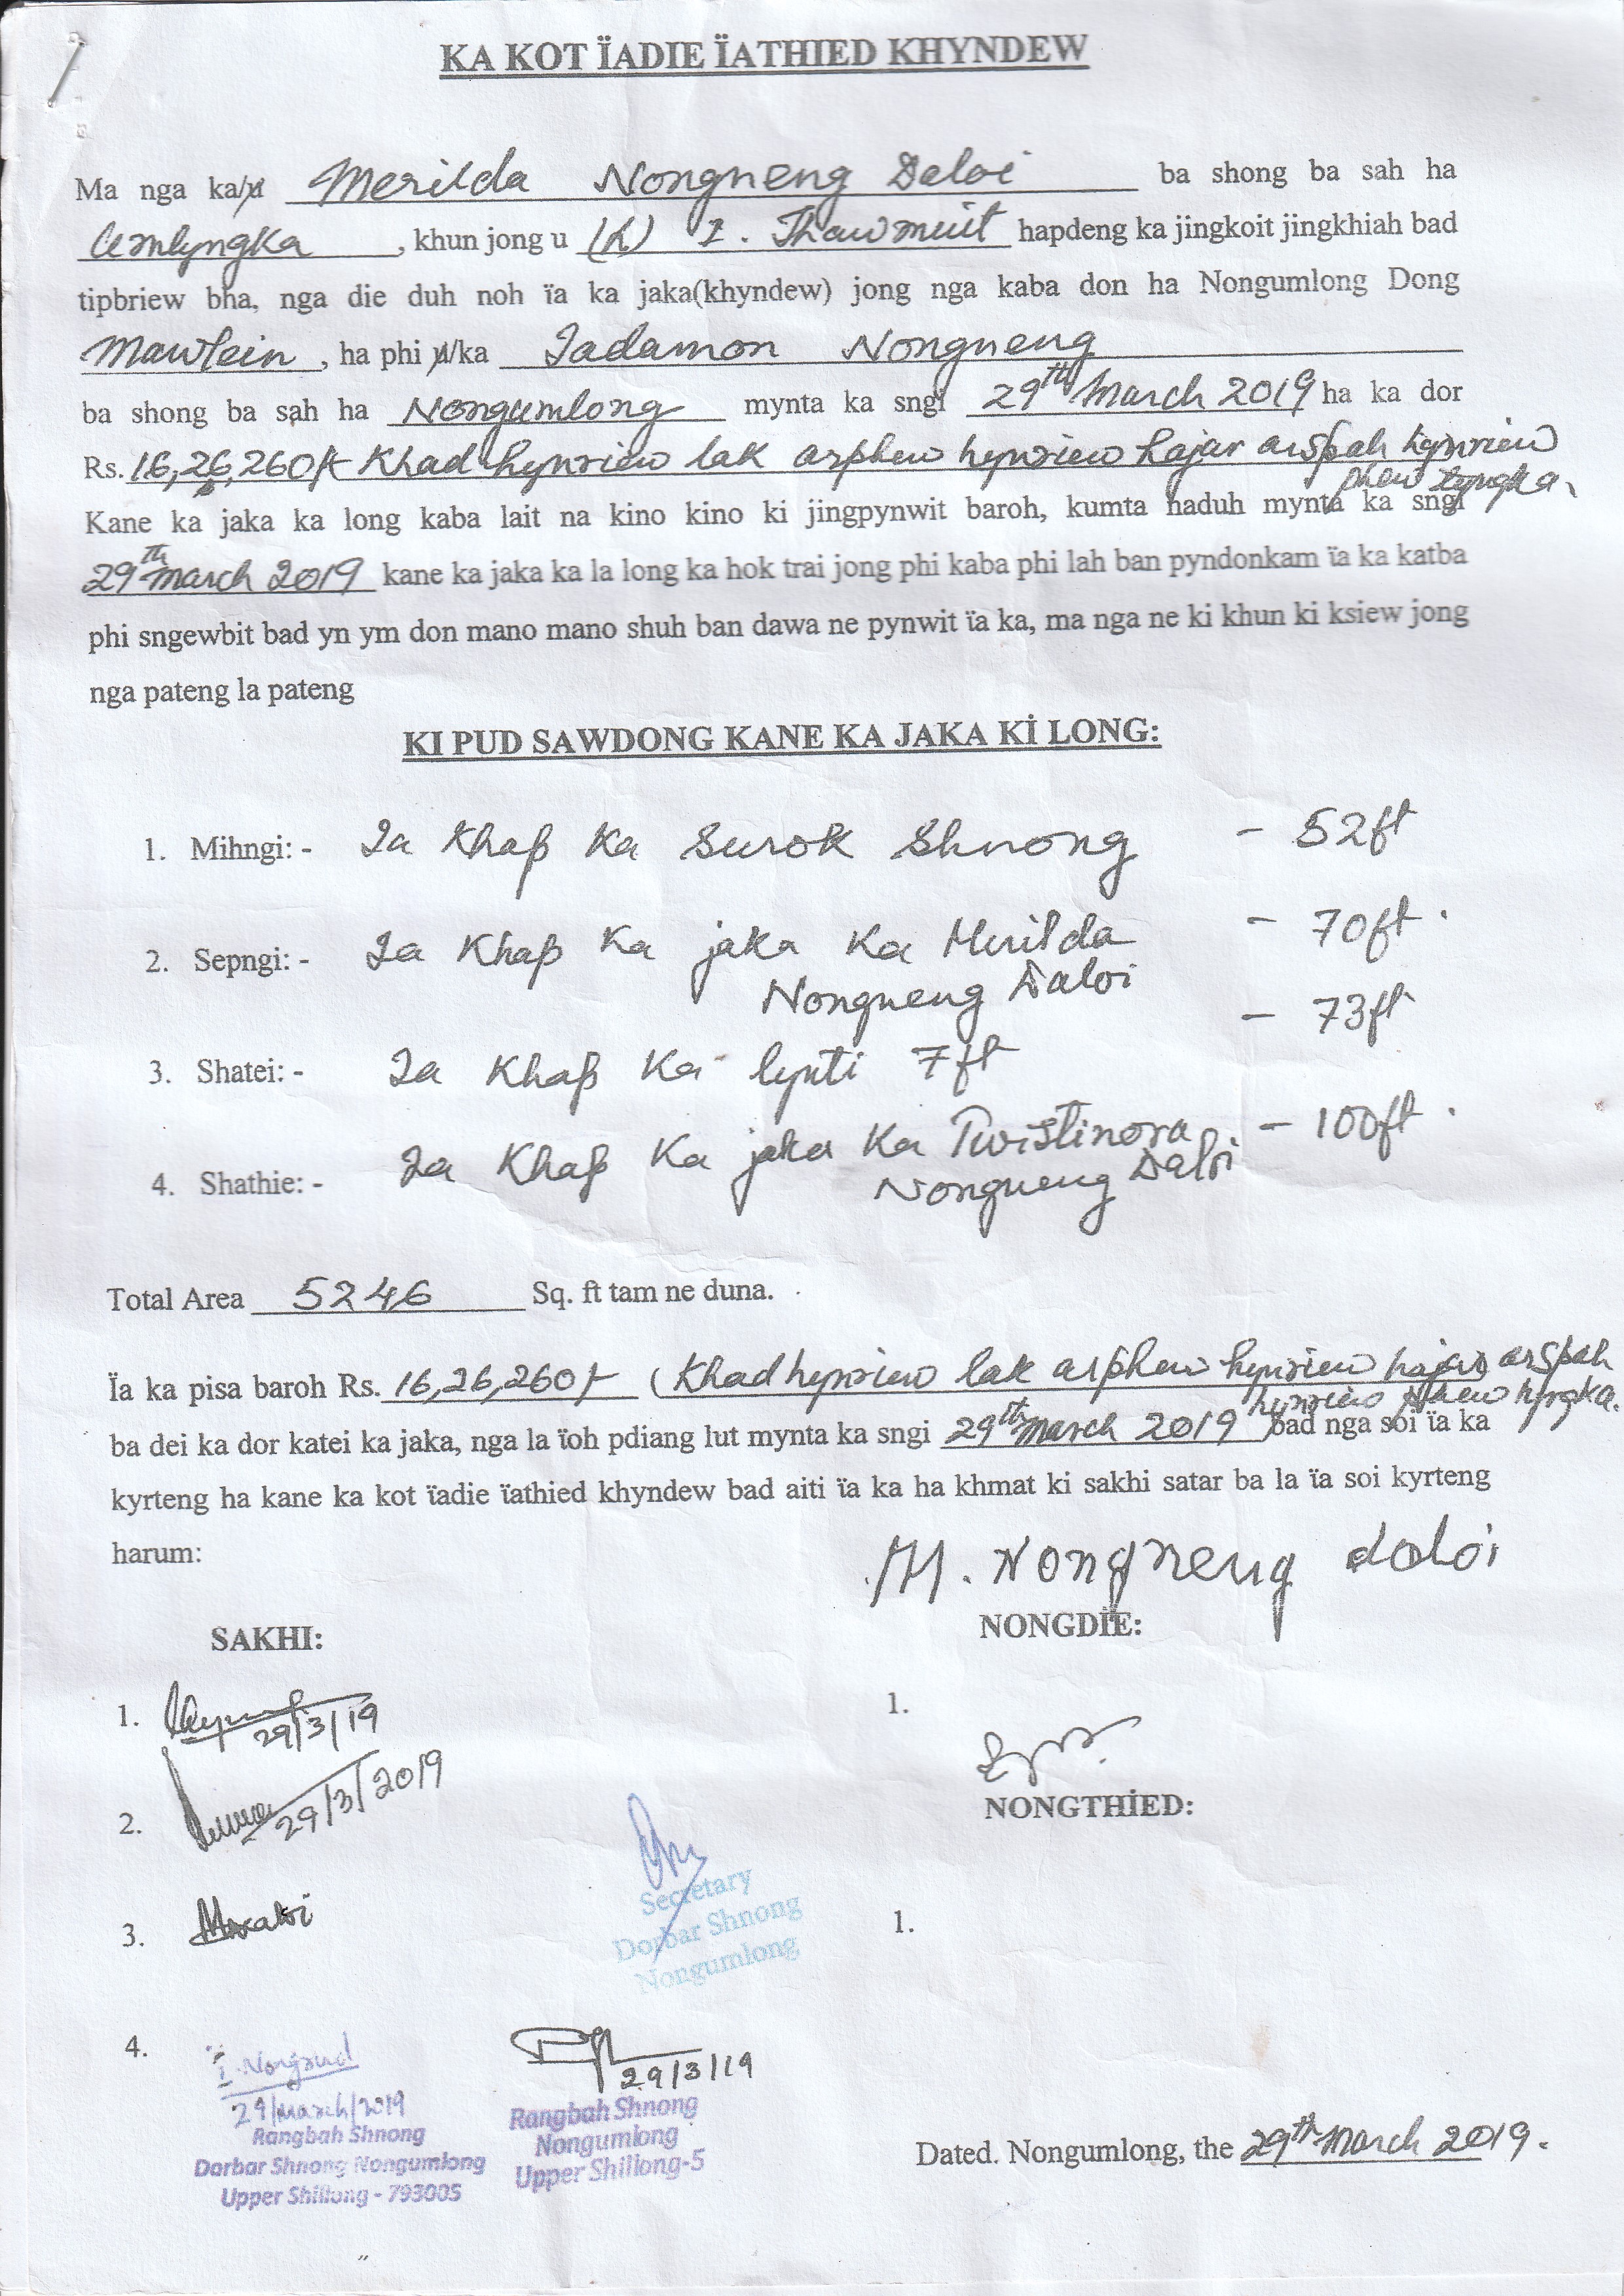 KA KOT ÏADIE ÏATHIED KHYNDEW
Ma nga ka/u Merilda Nongneng Daloi ba shong ba sah ha
Umlyngka, khun jong u (L) I. Thawmuit hapdeng ka jingkoit jingkhiah bad
tipbriew bha, nga die duh noh ïa ka jaka(khyndew) jong nga kaba don ha Nongumlong Dong
Mawlein, ha phi u/ka Iadamon Nongneng
ba shong ba sah ha Nongumlong mynta ka sngi 29th March 2019 ha ka dor
Rs. 16,26,260/- Khad hynriew lak arphew hynriew hajar arspah hynriew
phew tyngka.
Kane ka jaka ka long kaba lait na kino kino ki jingpynwit baroh, kumta naduh mynta ka sngi
29th March 2019 kane ka jaka ka la long ka hok trai jong phi kaba phi lah ban pyndonkam ïa ka katba
phi sngewbit bad yn ym don mano mano shuh ban dawa ne pynwit ïa ka, ma nga ne ki khun ki ksiew jong
nga pateng la pateng
KI PUD SAWDONG KANE KA JAKA Kİ LONG:
1. Mihngi: - Ia Khap Ka Surok Shnong - 52ft
2. Sepngi: - Ia Khap Ka jaka Ka Merilda - 70ft.
Nongneng Daloi
3. Shatei: - Ia Khap Ka lynti 7ft - 73ft
4. Shathie: - Ia Khap Ka jaka Ka Twistinora - 100ft.
Nongneng Daloi
Total Area 5246 Sq. ft tam ne duna.
Ïa ka pisa baroh Rs. 16,26,260/- (Khadhynriew lak arphew hynriew hajar arspah
hynriew phew tyngka.
ba dei ka dor katei ka jaka, nga la ïoh pdiang lut mynta ka sngi 29th March 2019 bad nga soi ïa ka
kyrteng ha kane ka kot ïadie ïathied khyndew bad aiti ïa ka ha khmat ki sakhi satar ba la ïa soi kyrteng
harum:
M. Nongneng daloi
SAKHI:
NONGDİE:
1. 29/3/19
1.
2. 29/3/2019
NONGTHİED:
3.
Secretary
Dorbar Shnong
Nongumlong
1.
4.
29/March/2019
Rangbah Shnong
Dorbar Shnong Nongumlong
Upper Shillong - 793005
29/3/19
Rangbah Shnong
Nongumlong
Upper Shillong-5
Dated. Nongumlong, the 29th March 2019.